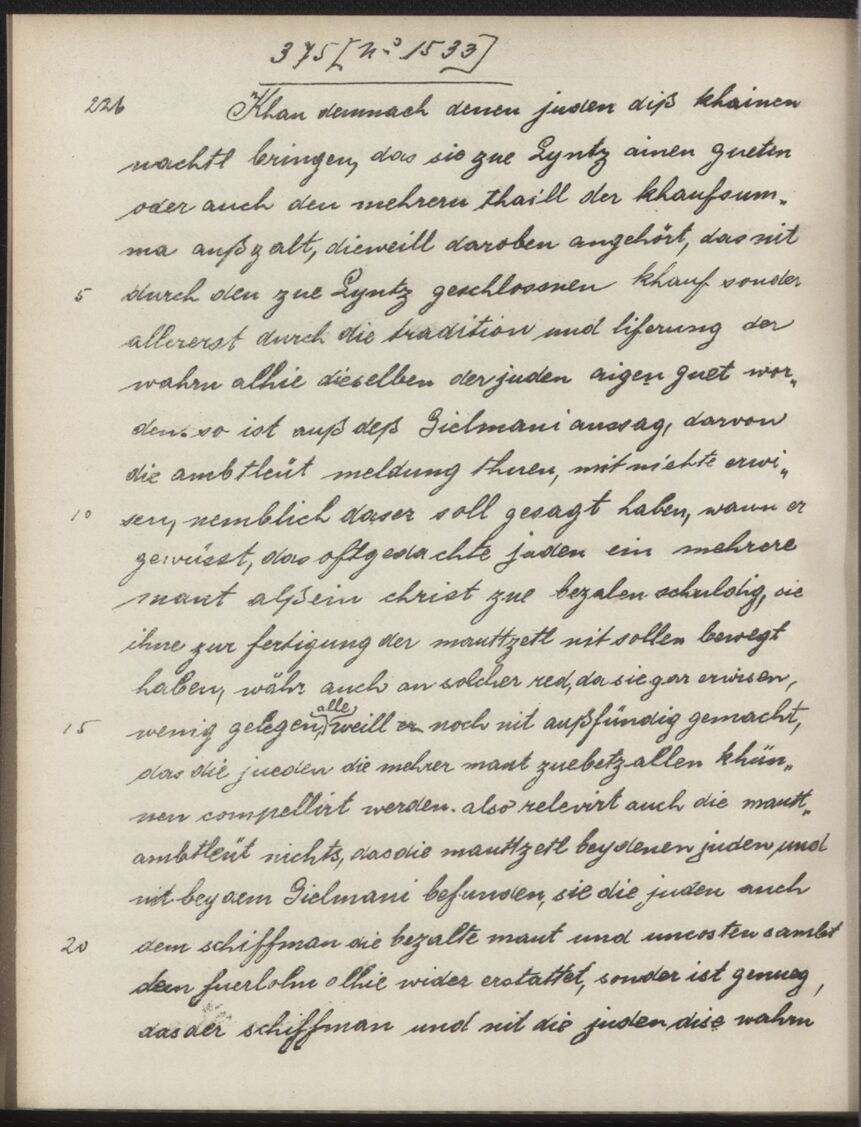 375 [No 1533]
226 Khan demnach denen juden diß khainen
nachtl bringen, das sie zue Lyntz ainen gueten
oder auch den mehrern thaill der khaufsum„
ma außzalt, dieweill daroben angehört, das nit
5 durch den zue Lyntz geschlossnen khauf sonder
allererst durch die tradition und liferung der
wahrn alhie dieselben der juden aigen guet wor„
den. so ist auß deß Gielmani aussag, darvon
die ambtleüt meldung thuen, mit nichte erwi„
10 sen, nemblich das er soll gesagt haben, wann er
gewüsst, das oftgedachte juden ein mehrere
maut alß ein christ zue bezalen schuldig, sie
ihne zur fertigung der mauttzetl nit sollen bewegt
haben, währ auch an solcher red, da sie gar erwisen,
alle
15 wenig gelegen, weill er noch nit außfündig gemacht,
das die jueden die mehrer maut zuebetzallen khün„
nen compellirt werden. also relevirt auch die mautt„
ambtleüt nichts, das die mauttzetl bey denen juden und
nit bey dem Gielmani befunden, sie die juden auch
20 dem schiffman die bezalte maut und uncosten sambt
dem fuerlohn alhie wider erstattet, sonder ist genueg,
das der schiffman und nit die juden dise wahrn